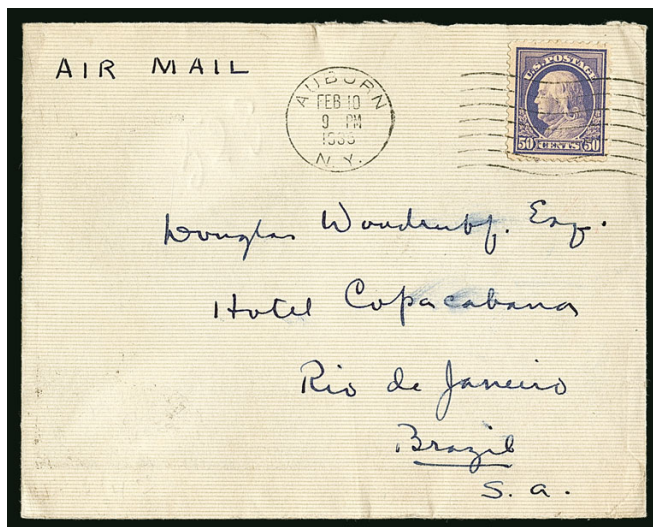 AIR MAIL
AUBURN
FEB 10
9 PM
1933
N.Y.
U.S. POSTAGE
50 CENTS 50
Douglas Woodruff. Esq.
Hotel Copacabana
Rio de Janeiro
Brazil
S. a.